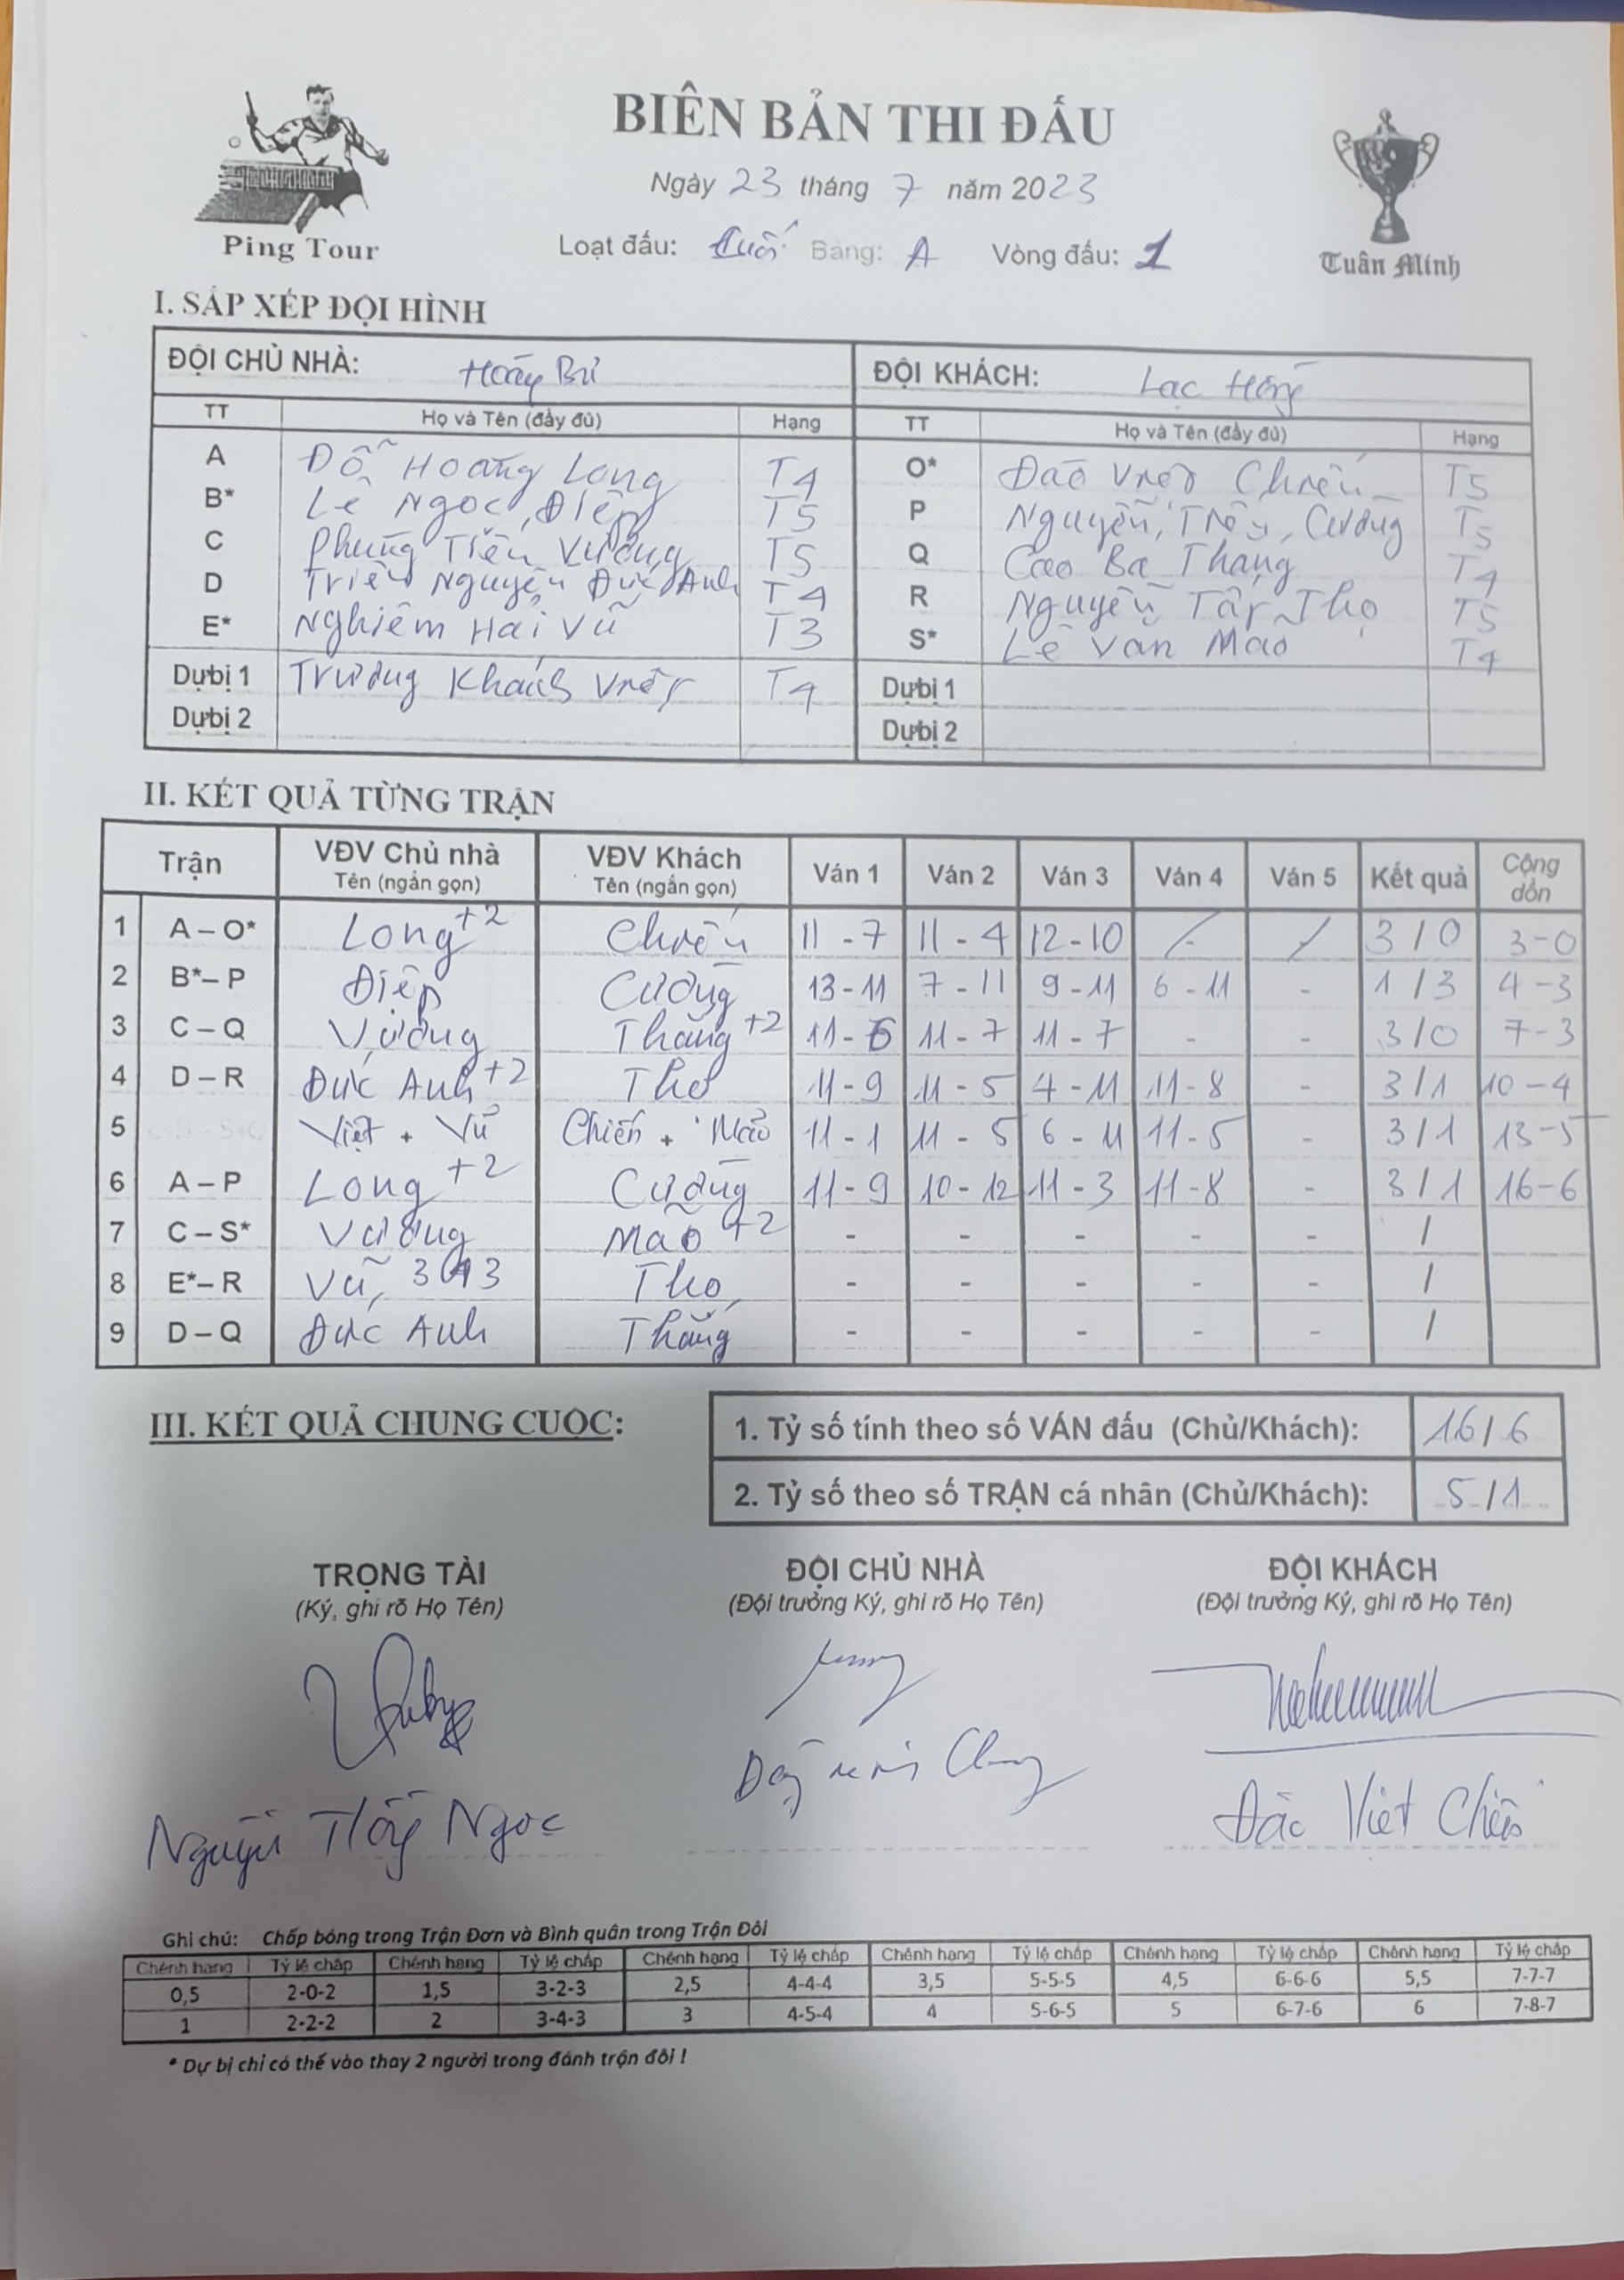 BIÊN BẢN THI ĐẤU
Ngày 23 tháng 7 năm 2023
Ping Tour
Loạt đấu: Cuối Bảng: A Vòng đấu: 1
Tuấn Minh
I. SẮP XẾP ĐỘI HÌNH
ĐỘI CHỦ NHÀ: ĐỘI KHÁCH: Lạc Hồng
TT Họ và Tên (đầy đủ) Hạng TT Họ và Tên (đầy đủ) Hạng
A Đỗ Hoàng Long T4 O* Đào Việt Chiến T5
B* Lê Ngọc Điệp T5 P Nguyễn Cường T5
C Phùng Tiến Vượng T5 Q Cao Bá Thắng T4
D Triệu Nguyễn Đức Anh T4 R Nguyễn Tấn Thọ T5
E* Nghiêm Hải Vũ T3 S* Lê Văn Mão T4
Dự bị 1 Trương Khánh Việt T4 Dự bị 1
Dự bị 2 Dự bị 2
II. KẾT QUẢ TỪNG TRẬN
Trận VĐV Chủ nhà Tên (ngắn gọn) VĐV Khách Tên (ngắn gọn) Ván 1 Ván 2 Ván 3 Ván 4 Ván 5 Kết quả Cộng dồn
1 A – O* Long +2 Chiến 11 - 7 11 - 4 12 - 10 - - 3 / 0 3 - 0
2 B* – P Điệp Cường 13 - 11 7 - 11 9 - 11 6 - 11 - 1 / 3 4 - 3
3 C – Q Vượng Thắng +2 11 - 6 11 - 7 11 - 7 - - 3 / 0 7 - 3
4 D – R Đức Anh +2 Thọ 11 - 9 11 - 5 4 - 11 11 - 8 - 3 / 1 10 - 4
5 Việt + Vũ Chiến + Mão 11 - 1 11 - 5 6 - 11 11 - 5 - 3 / 1 13 - 5
6 A – P Long +2 Cường 11 - 9 10 - 12 11 - 3 11 - 8 - 3 / 1 16 - 6
7 C – S* Vượng Mão +2 - - - - - /
8 E* – R Vũ Thọ - - - - - /
9 D – Q Đức Anh Thắng - - - - - /
III. KẾT QUẢ CHUNG CUỘC:
1. Tỷ số tính theo số VÁN đấu (Chủ/Khách): 16 / 6
2. Tỷ số theo số TRẬN cá nhân (Chủ/Khách): 5 / 1
TRỌNG TÀI ĐỘI CHỦ NHÀ ĐỘI KHÁCH
(Ký, ghi rõ Họ Tên) (Đội trưởng Ký, ghi rõ Họ Tên) (Đội trưởng Ký, ghi rõ Họ Tên)
Nguyễn Hồng Ngọc Đào Việt Chiến
Ghi chú: Chấp bóng trong Trận Đơn và Bình quân trong Trận Đôi
Chênh hạng Tỷ lệ chấp Chênh hạng Tỷ lệ chấp Chênh hạng Tỷ lệ chấp Chênh hạng Tỷ lệ chấp Chênh hạng Tỷ lệ chấp Chênh hạng Tỷ lệ chấp
0,5 2-0-2 1,5 3-2-3 2,5 4-4-4 3,5 5-5-5 4,5 6-6-6 5,5 7-7-7
1 2-2-2 2 3-4-3 3 4-5-4 4 5-6-5 5 6-7-6 6 7-8-7
* Dự bị chỉ có thể vào thay 2 người trong đánh trận đôi !